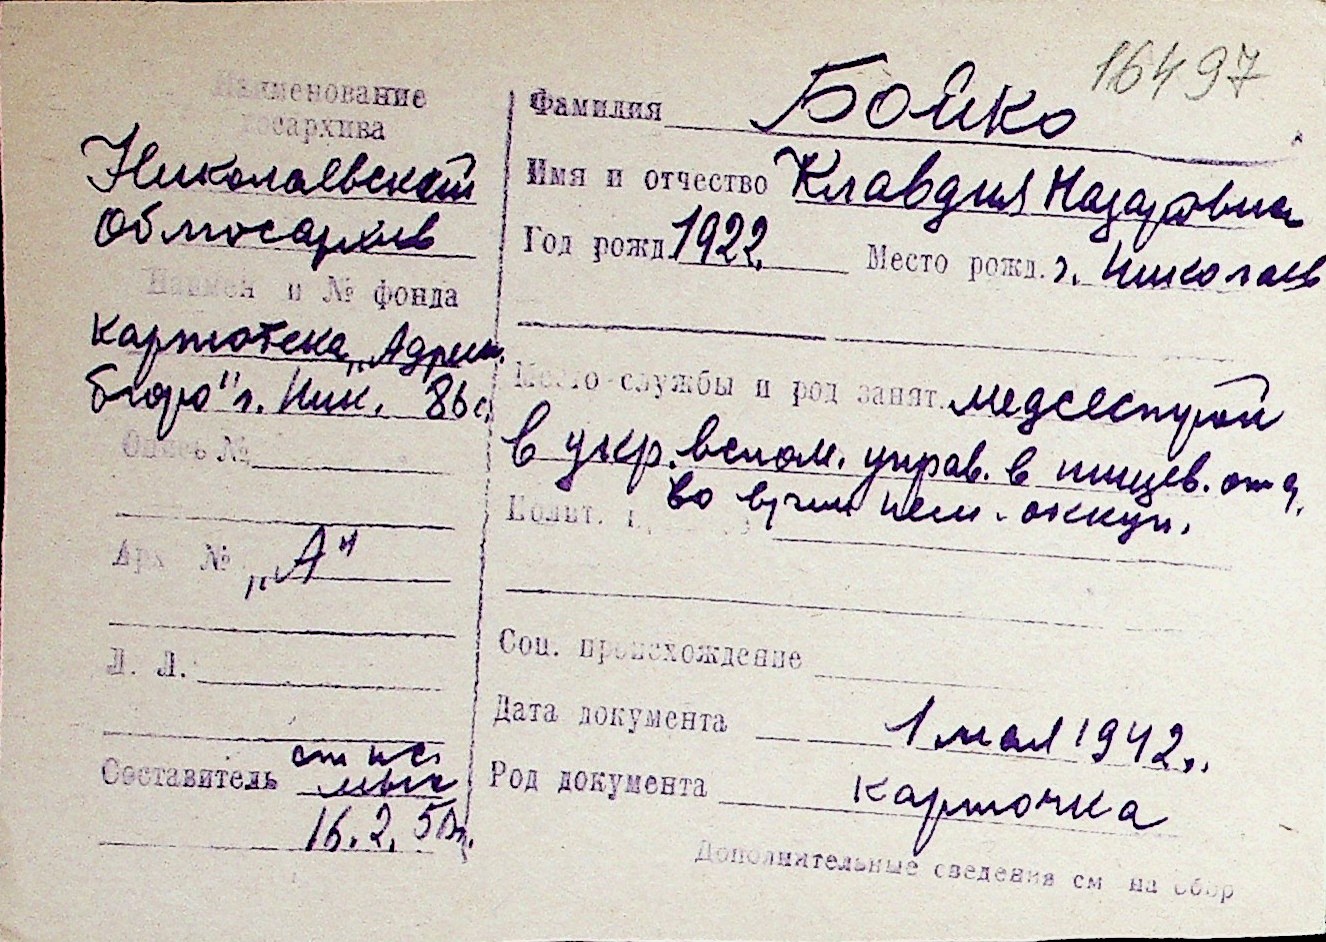 16497
Наименование
госархива
Николаевский
Облгосархив
Наимен и № фонда
картотека „Адресн.
бюро" г. Ник. 86 с
Опись №
Арх №
„А"
Л. Л.
Составитель
16.2.50г.
Фамилия Бойко
Имя и отчество Клавдия Назаровна
Год рожд 1922 Место рожд. г. Николаев
Место службы и род занят. медсестрой
в укр. вспом. управ. в пищев. отд.
во время нем. оккуп.
Соц. происхождение
Дата документа 1 мая 1942г.
Род документа карточка
Дополнительные сведения см на обор